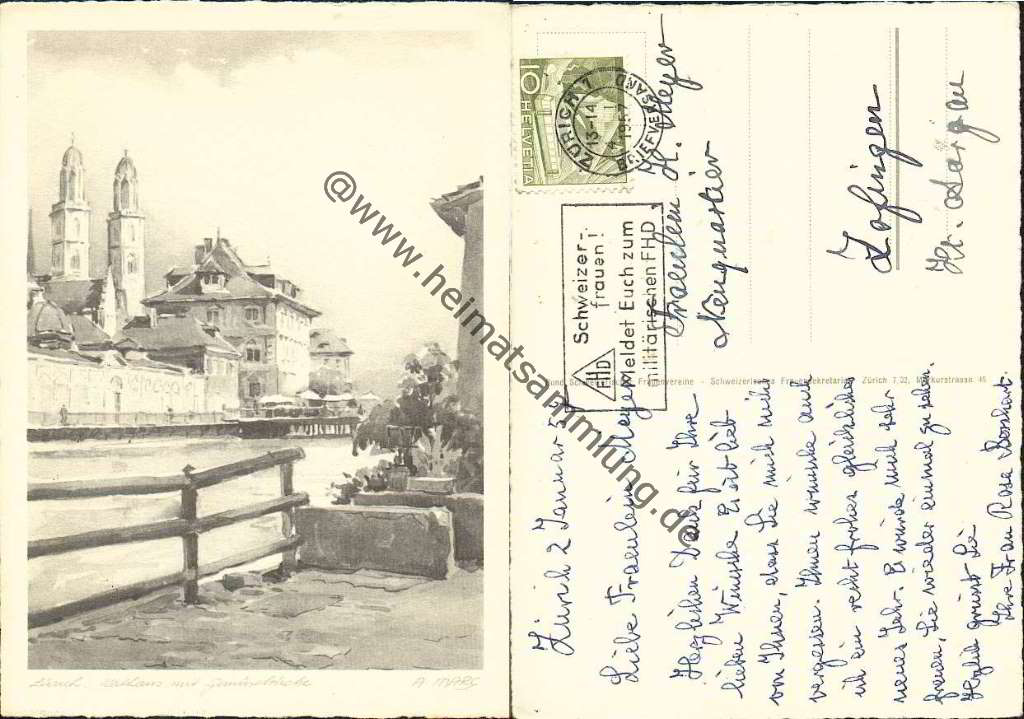 Zürich. Rathaus mit Gemüsebrücke
A MARC
@www.heimatsammlung.de
10
HELVETIA
ZÜRICH 1
13-14
1957
BRIEFVERSAND
Schweizer-
frauen!
Meldet Euch zum
militärischen FHD
FHD
Fräulein H. Meyer
Neuquartier
Zofingen
Kt. Aargau
Bund Schweizerischer Frauenvereine - Schweizerisches Frauensekretariat, Zürich 7/32, Merkurstrasse 45
Zürich 2 Januar 57
Liebe Fräulein Meyer
Herzlichen Dank für Ihre
lieben Wünsche. Es ist lieb
von Ihnen, dass Sie mich nicht
vergessen. Ihnen wünsche auch
ich ein recht frohes glückliches
neues Jahr. Es würde mich sehr
freuen, Sie wieder einmal zu sehen.
Herzlich grüsst Sie
Ihre Frau Rosa Bosshart.